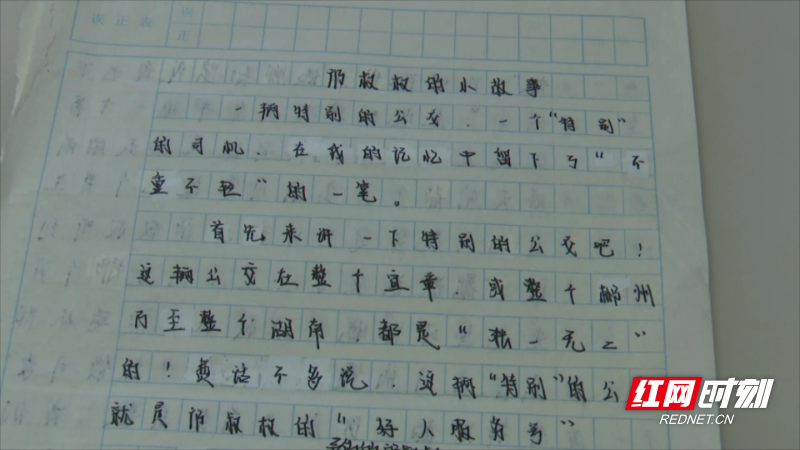 误
正
误正表
邝叔叔的小故事
一辆特别的公交,一个“特别”
的司机,在我的记忆中留下了“不
重不轻”的一笔。
首先来讲一下特别的公交吧!
这辆公交在整个宜章,或整个郴州
乃至整个湖南,都是“独一无二”
的!废话不多说,这辆“特别”的公
就是邝叔叔的“好人服务号”
红网时刻
REDNET.CN